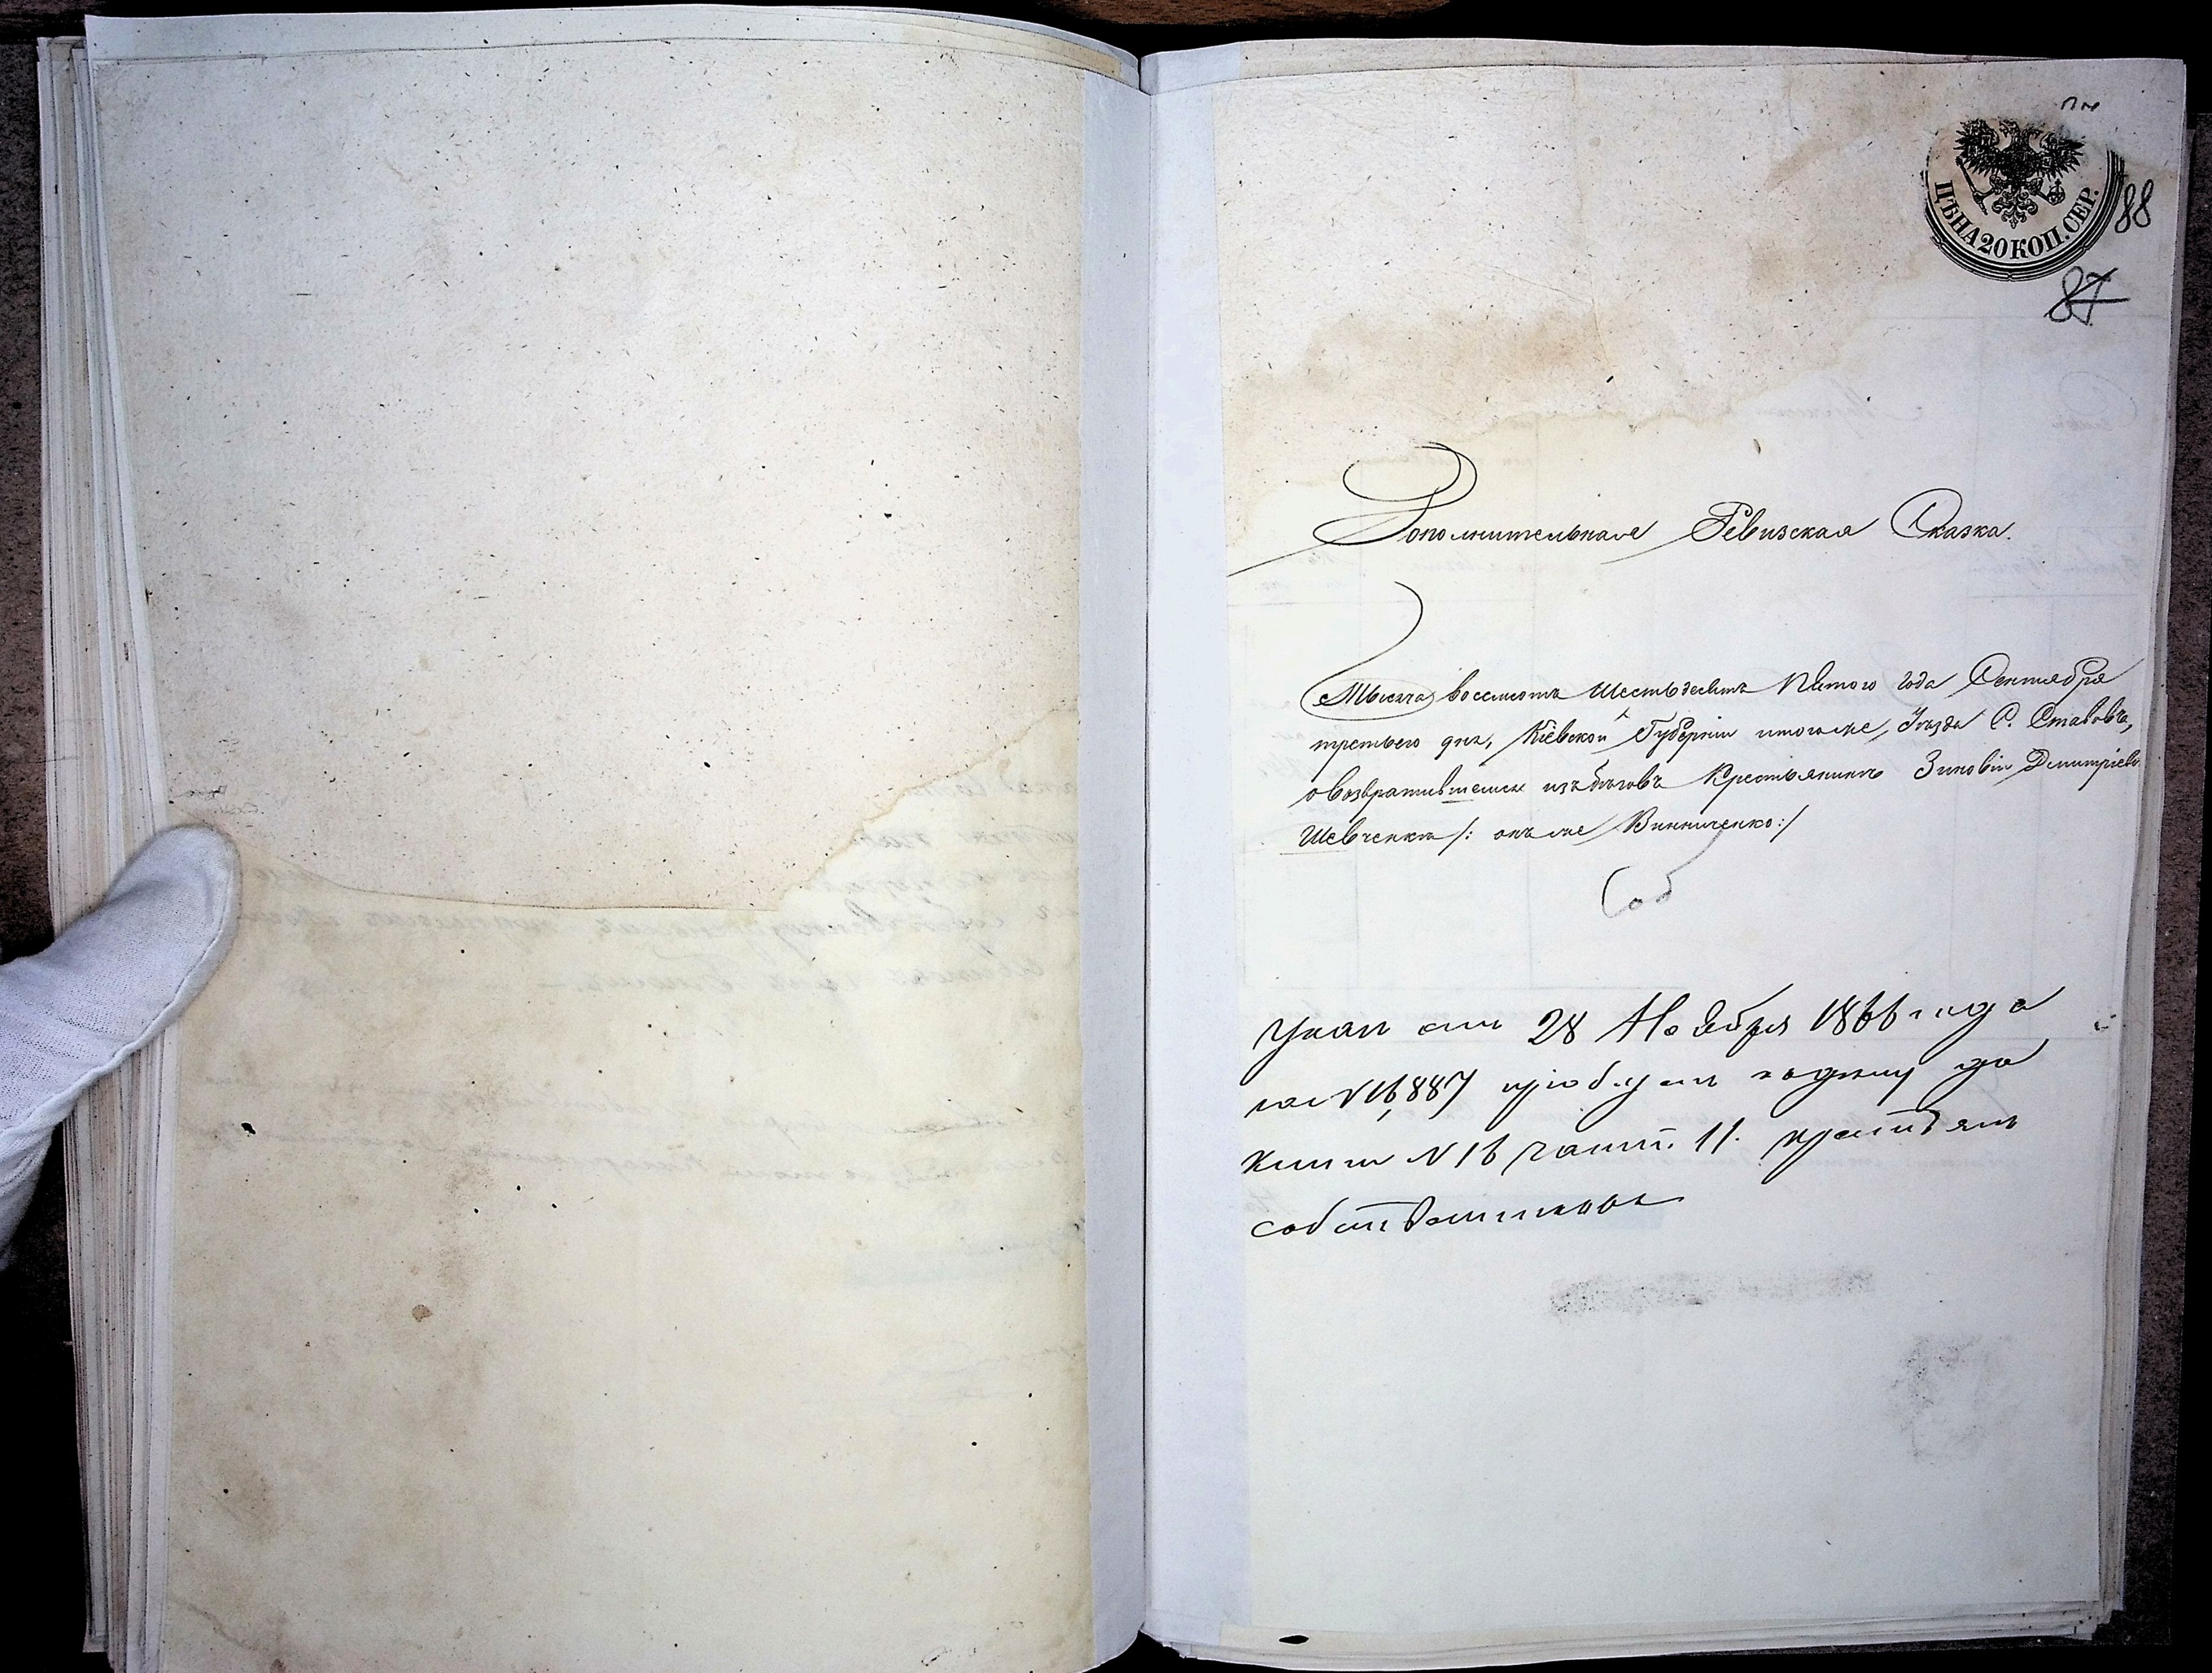 ЦѢНА 20 КОП. СЕР.
88
87
Дополнительная Ревизская Сказка.
Тысяча восемсотъ Шестьдесятъ Пятого года Сентября
третьего дня, Кіевской Губерніи итогоже, Уѣзда С. Ставовъ,
овозвратившемся изъбѣговъ Крестьянинѣ Зиновіи Дмитріевѣ
Шевченкѣ /: онъ же Винниченко :/
Соб
Указъ отъ 28 Ноября 1866 года
за N 16,887 къ
книги N 16 части 11. крестьянъ
собственниковъ